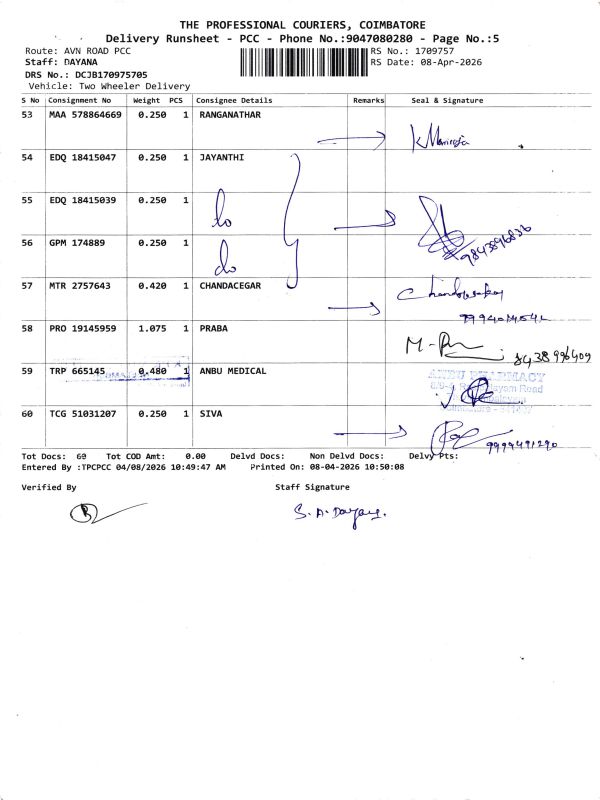 THE PROFESSIONAL COURIERS, COIMBATORE
Delivery Runsheet - PCC - Phone No.:9047080280 - Page No.:5
Route: AVN ROAD PCC RS No.: 1709757
Staff: DAYANA RS Date: 08-Apr-2026
DRS No.: DCJB170975705
Vehicle: Two Wheeler Delivery
S No Consignment No Weight PCS Consignee Details Remarks Seal & Signature
53 MAA 578864669 0.250 1 RANGANATHAR
54 EDQ 18415047 0.250 1 JAYANTHI
55 EDQ 18415039 0.250 1 do
56 GPM 174889 0.250 1 do
9843896836
57 MTR 2757643 0.420 1 CHANDACEGAR
58 PRO 19145959 1.075 1 PRABA
59 TRP 665145 0.480 1 ANBU MEDICAL
ANBU PHARMACY
60 TCG 51031207 0.250 1 SIVA
9999491290
Tot Docs: 60 Tot COD Amt: 0.00 Delvd Docs: Non Delvd Docs: Delvy Pts:
Entered By :TPCPCC 04/08/2026 10:49:47 AM Printed On: 08-04-2026 10:50:08
Verified By Staff Signature
S. A. Dayana.